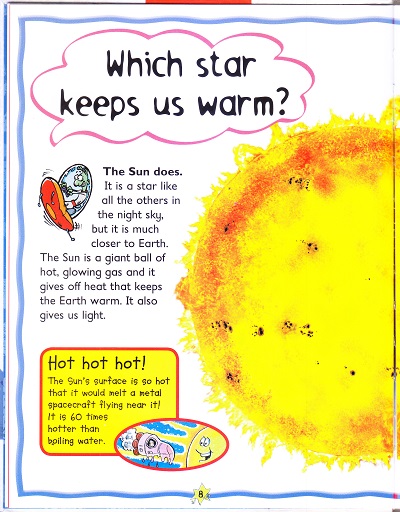 Which star
keeps us warm?
The Sun does.
It is a star like
all the others in
the night sky,
but it is much
closer to Earth.
The Sun is a giant ball of
hot, glowing gas and it
gives off heat that keeps
the Earth warm. It also
gives us light.
Hot hot hot!
The Sun's surface is so hot
that it would melt a metal
spacecraft flying near it!
It is 60 times
hotter than
boiling water.
8